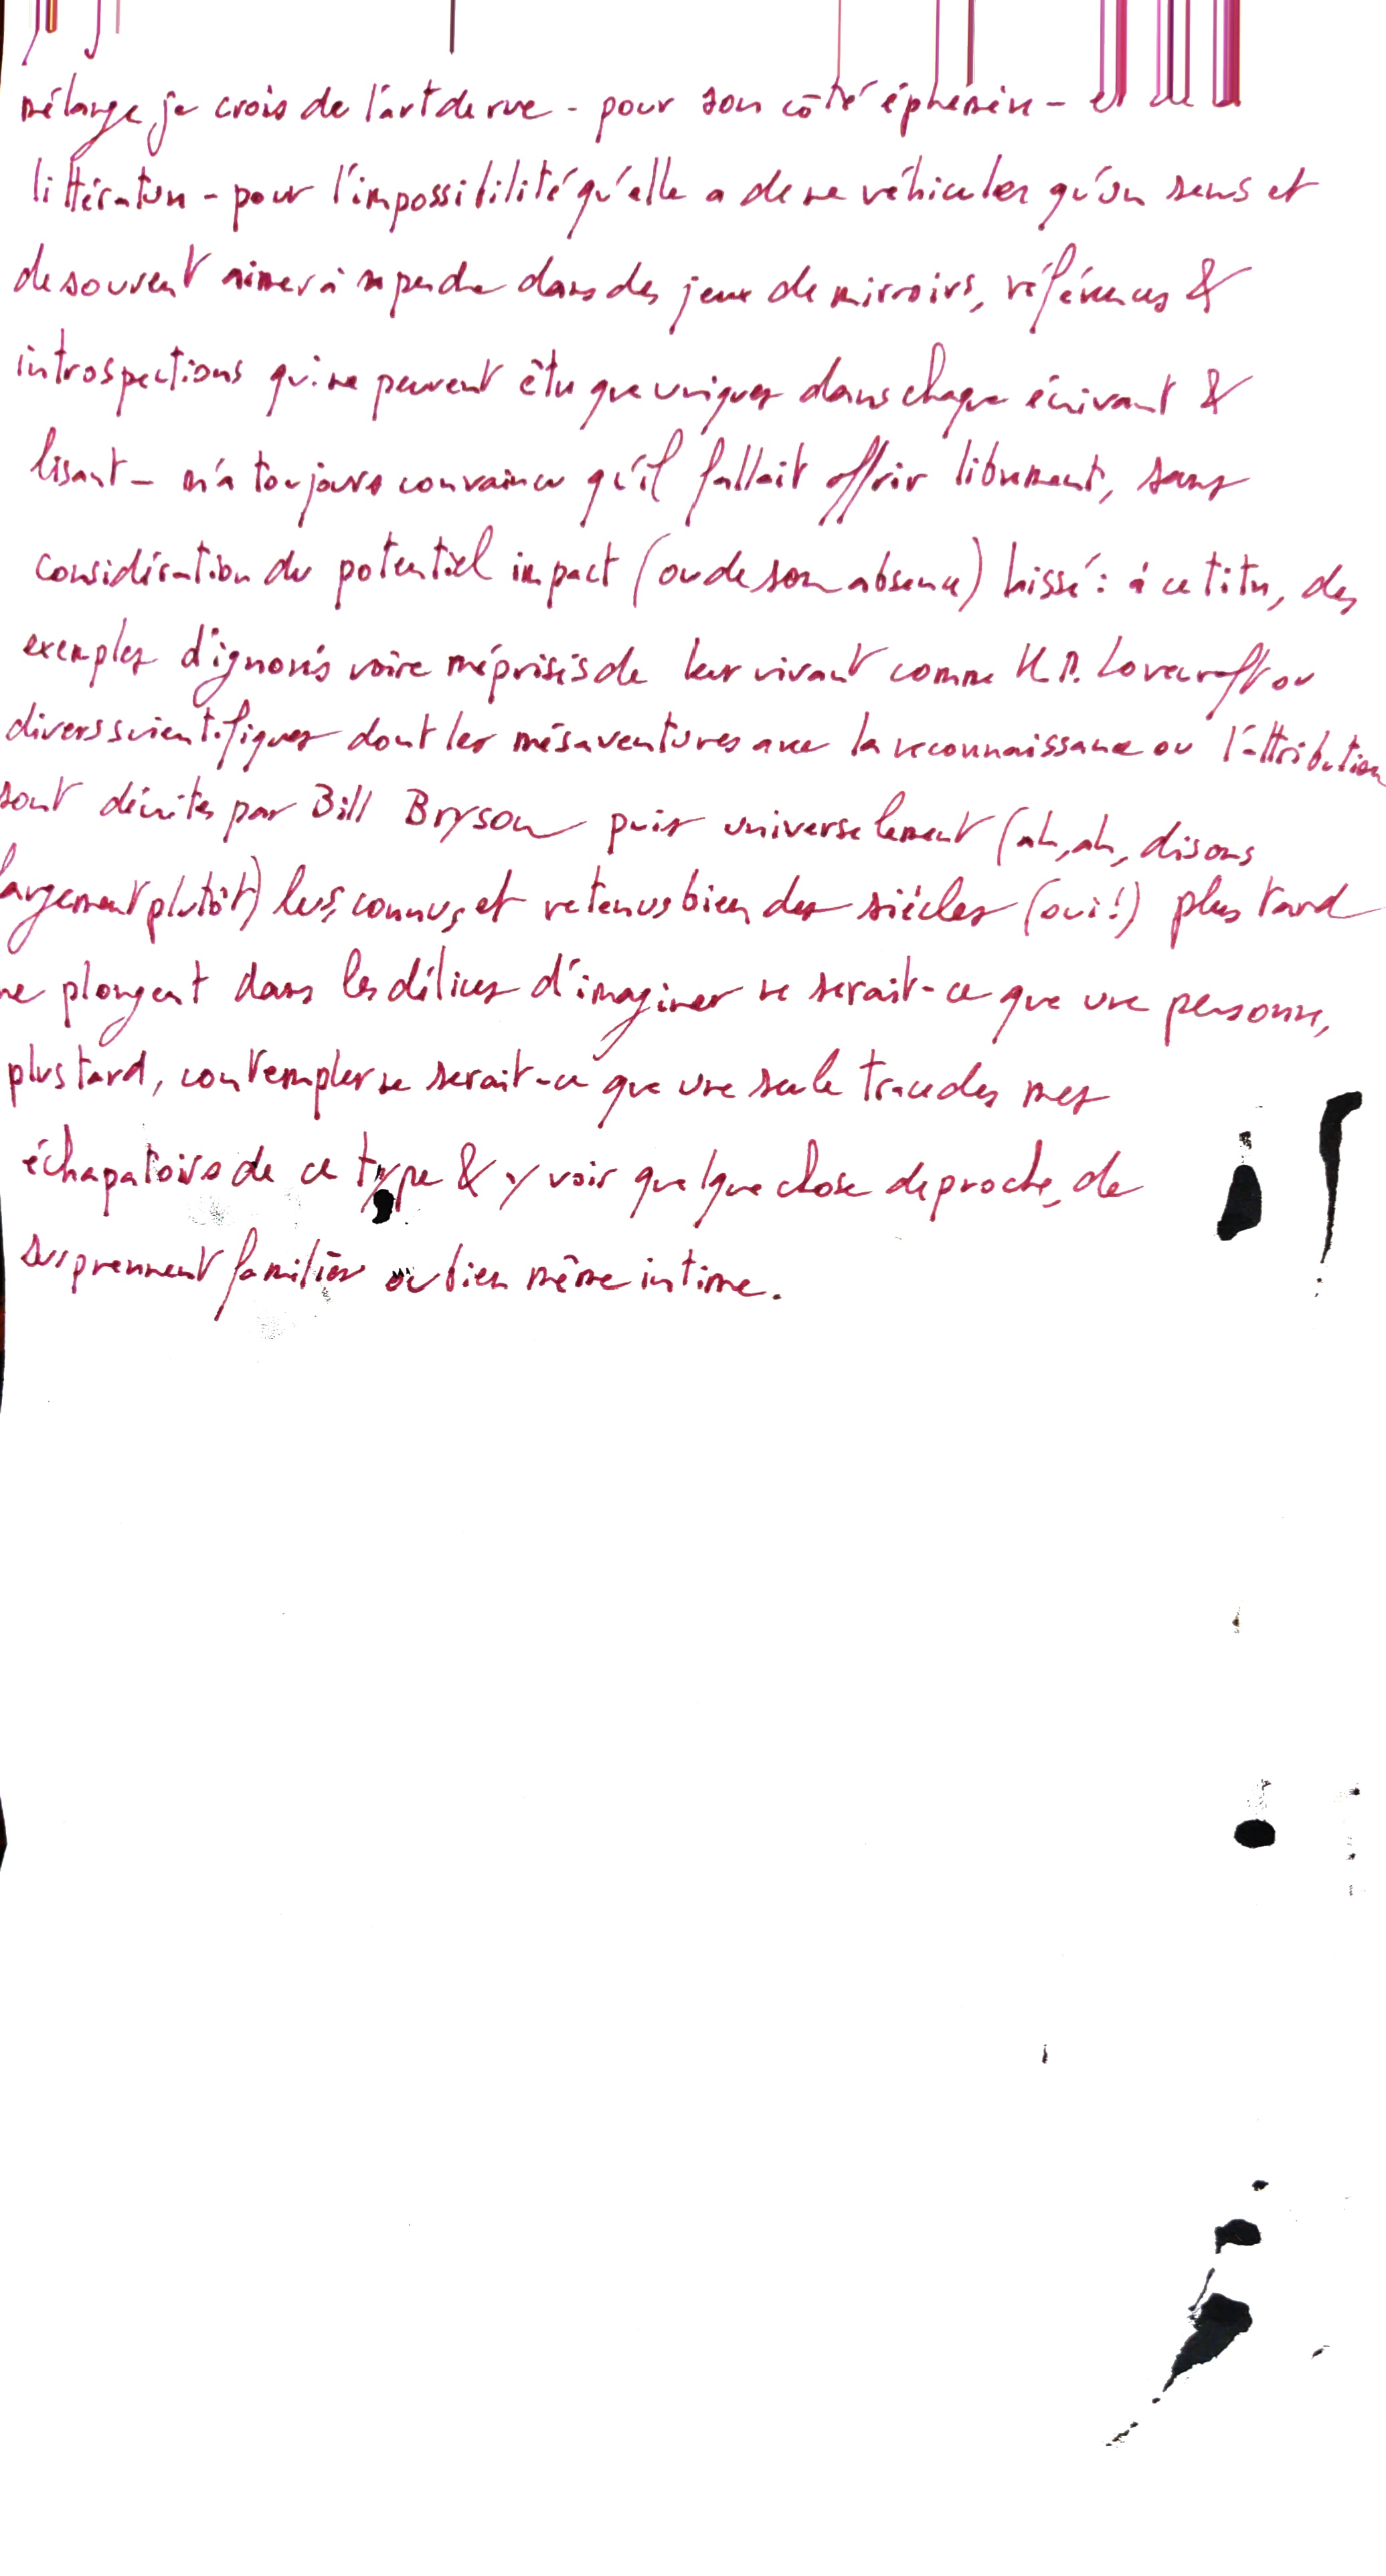 mélange je crois de l'art de rue - pour son côté éphémère - et de la
littérature - pour l'impossibilité qu'elle a de ne véhiculer qu'un sens et
de souvent aimer à se perdre dans des jeux de mirroirs, références &
introspections qui ne peuvent être que uniques dans chaque écrivant &
lisant - m'a toujours convaincu qu'il fallait offrir librement, sans
considération du potentiel impact (ou de son absence) laissé : à ce titre, des
exemples d'ignorés voire méprisés de leur vivant comme H.P. Lovecraft ou
divers scientifiques dont les mésaventures avec la reconnaissance ou l'attribution
sont décrites par Bill Bryson puis universellement (ah, ah, disons
largement plutôt) lus, connus, et retenus bien des siècles (oui !) plus tard
me plongent dans les délices d'imaginer ne serait-ce que une personne,
plus tard, contempler ne serait-ce que une seule trace des mes
échapatoirs de ce type & y voir quelque chose de proche, de
surprennent familier ou bien même intime.